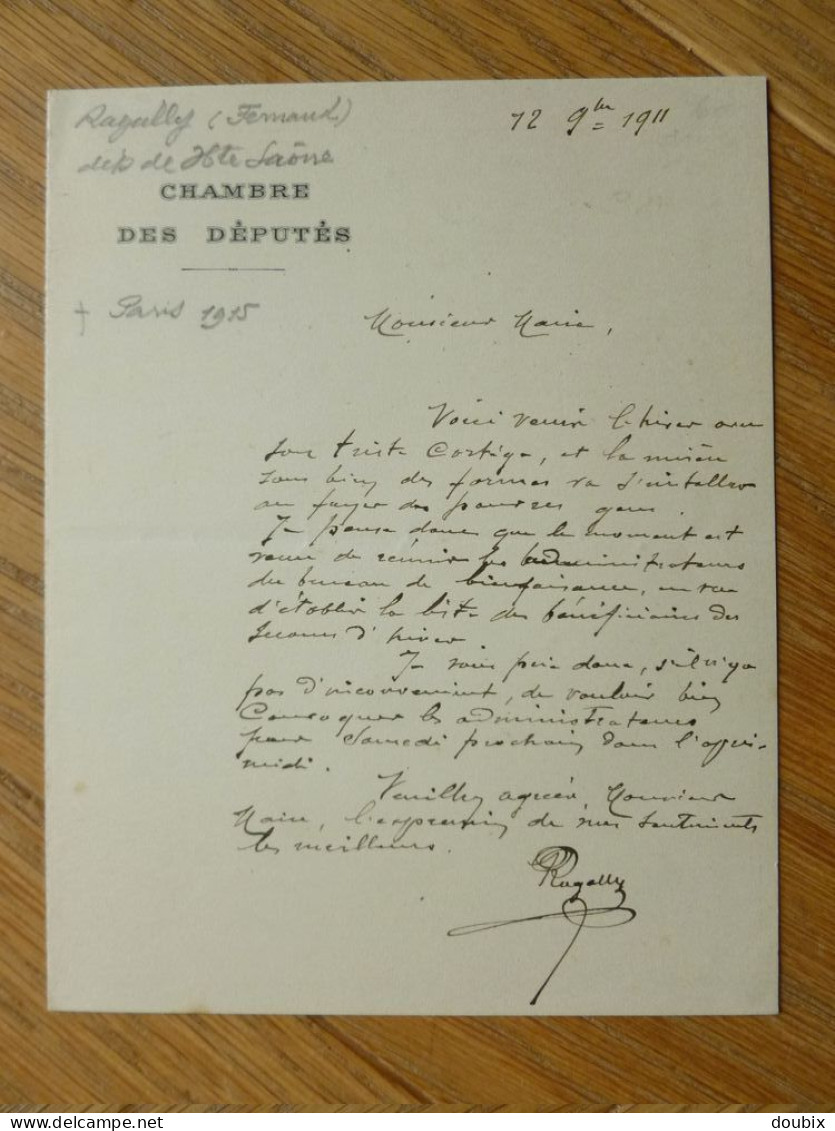 Ragally (Fernand)
dép de Hte Saône
12 9bre 1911
CHAMBRE
DES DÉPUTÉS
† Paris 1915
Monsieur Maire,
Voici venir l'hiver avec
son triste cortège, et la misère
sous bien des formes va s'installer
au foyer des pauvres gens.
Je pense donc que le moment est
venu de réunir les administrateurs
du bureau de bienfaisance, en vue
d'établir la liste des bénéficiaires des
secours d'hiver.
Je vous prie donc, s'il n'y a
pas d'inconvénient, de vouloir bien
convoquer les administrateurs
pour Samedi prochain dans l'après-
midi.
Veuillez agréer, Monsieur
Maire, l'expression de mes sentiments
les meilleurs.
Ragally
Delcampe.net
doubix